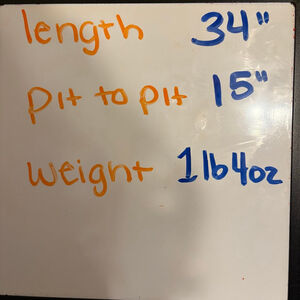 length 34"
pit to pit 15"
weight 1lb4oz